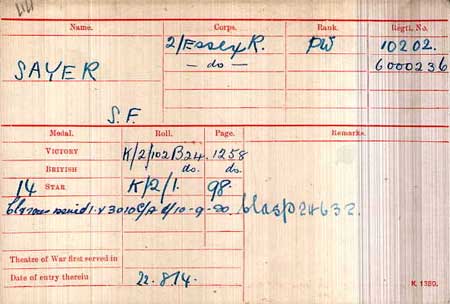 Name. Corps. Rank. Regtl. No.
SAYER 2/Essex R. PW 10202.
— do — 6000236
S.F.
Medal. Roll. Page. Remarks.
VICTORY K/2/102B24. 1258
BRITISH do. do.
14 STAR K/2/1. 98.
I.V 3010 C/A d/10-9-20 Clasp 24632.
Theatre of War first served in
Date of entry therein 22.8.14.
K. 1380.